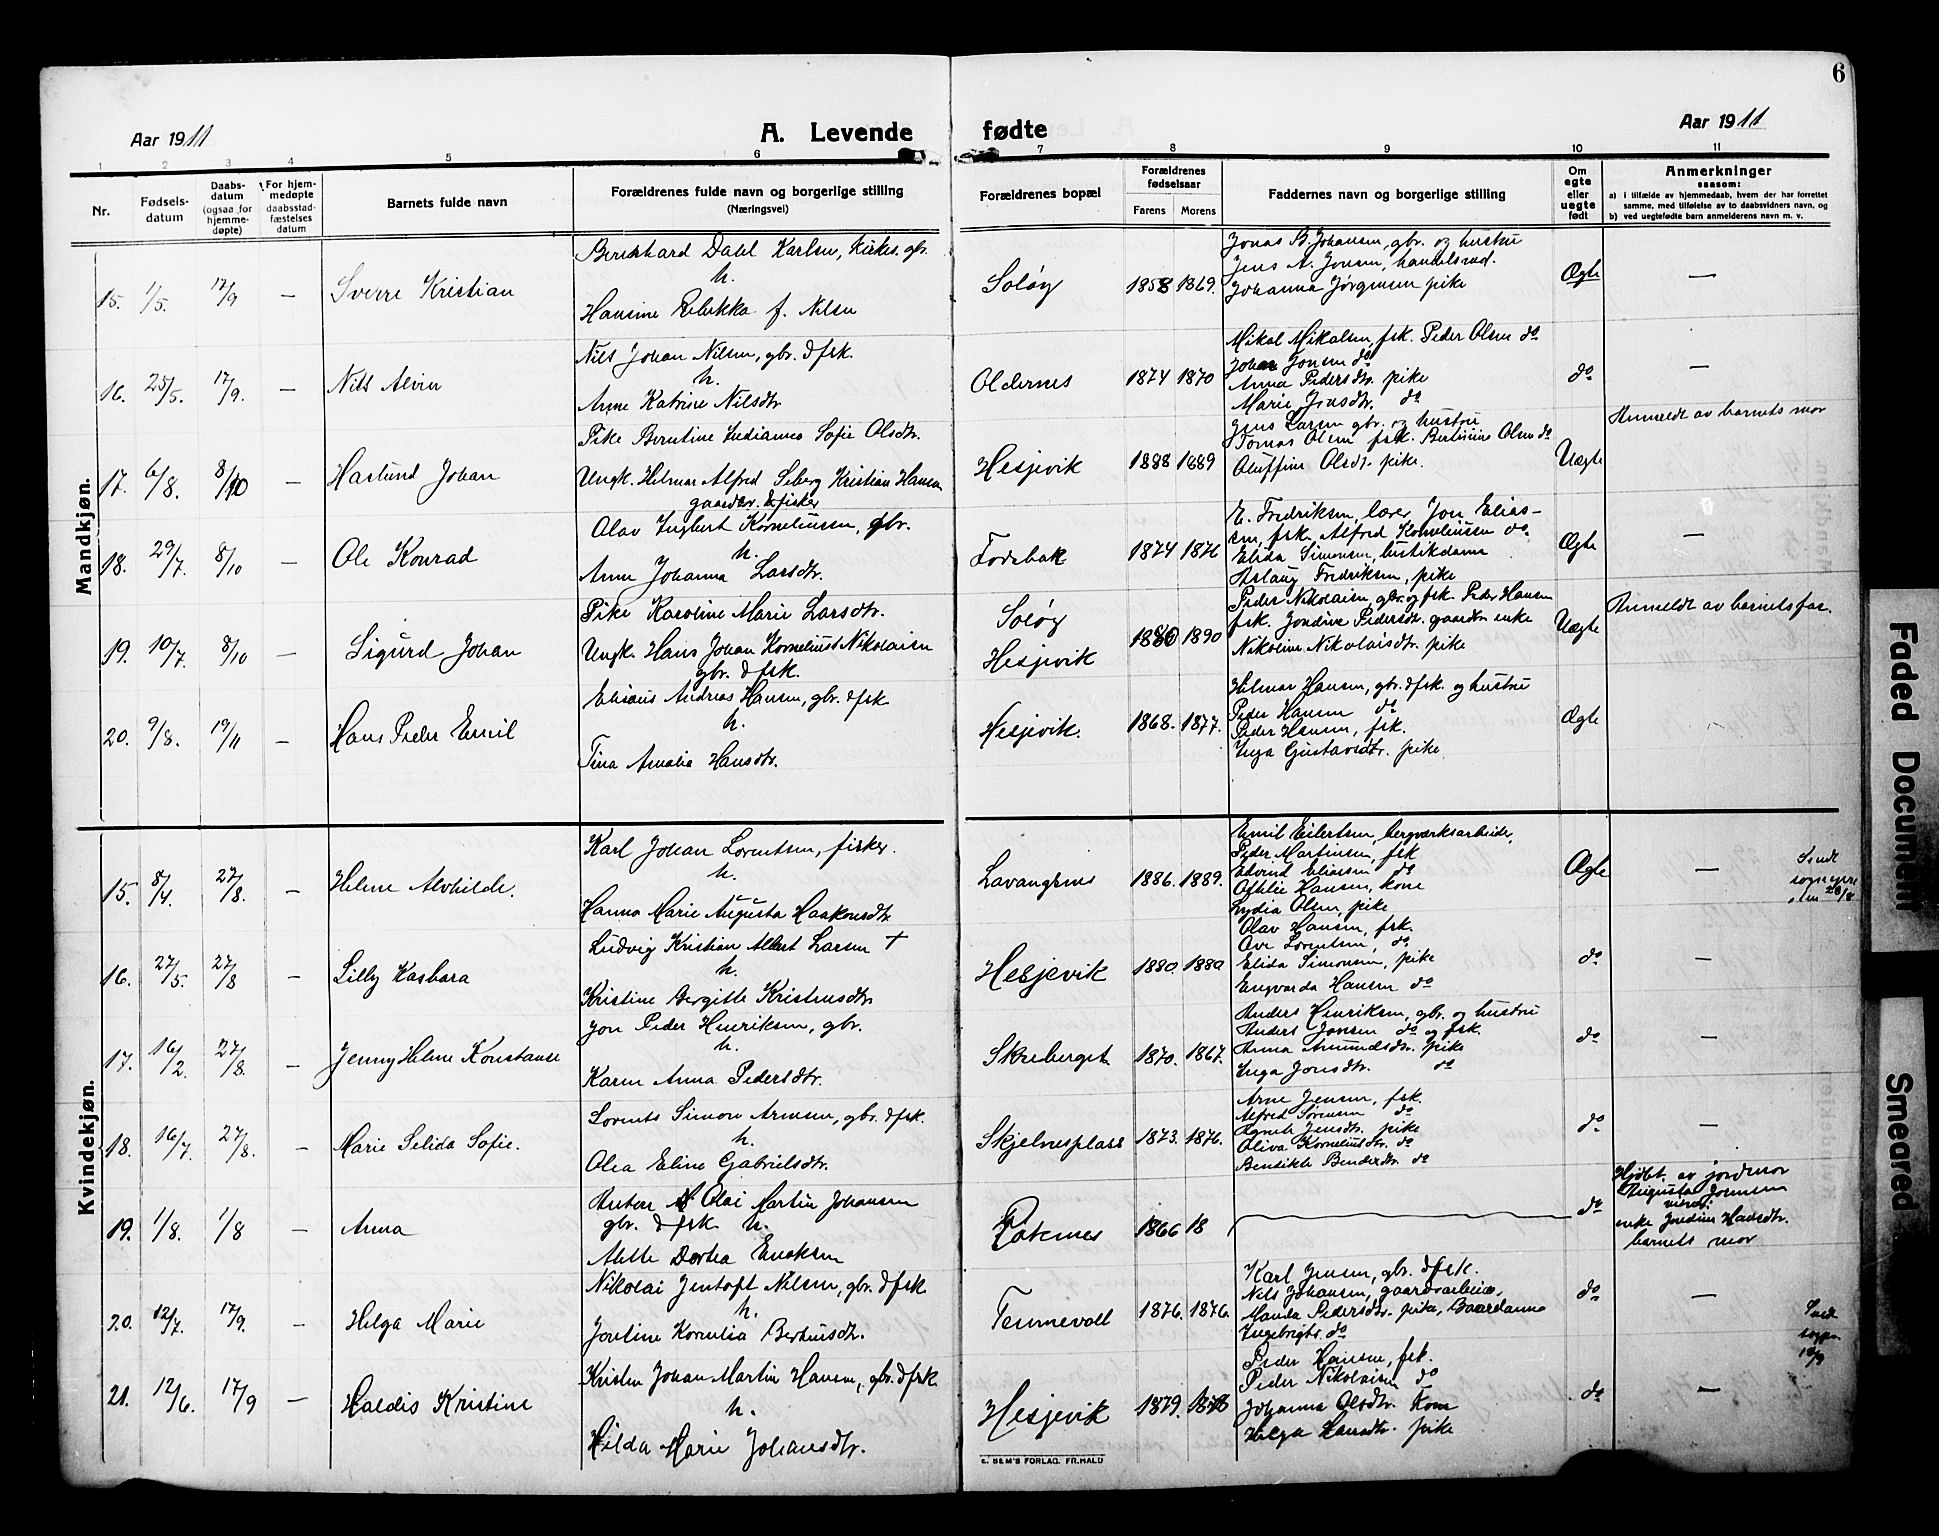 6
Aar 1911
A. Levende fødte
Aar 1911
1 2 3 4 5 6 7 8 9 10 11
Nr.
Fødsels-
datum
Daabs-
datum
(ogsaa for
hjemme-
døpte)
For hjem-
medøpte
daabsstad-
fæstelses
datum
Barnets fulde navn
Forældrenes fulde navn og borgerlige stilling
(Næringsvei)
Forældrenes bopæl
Forældrenes
fødselsaar
Farens Morens
Faddernes navn og borgerlige stilling
Om
egte
eller
uegte
født
Anmerkninger
saasom:
a) i tilfælde av hjemmedaab, hvem der har forrettet
samme, med tilføielse av to daabsvidners navn, og
b) ved uegtefødte barn anmelderens navn m. v.
Mandkjøn.
15. 1/5. 17/9 — Sverre Kristian
Bernhard Dahl Karlsen, kirkes. gbr.
h.
Hansine Rebekka f. Nilsen
Soløy 1858 1869.
Jonas B. Johansen, gbr. og hustru
Jens A. Jonsen, handelsmd.
Johanna Jørgensen pike
Ægte —
16. 25/5. 17/9. — Nils Alvin
Nils Johan Nilsen, gbr. & fsk.
h.
Anne Katrine Nilsdtr
Oldernes 1874 1870
Mikal Mikalsen, fsk. Peder Olsen do
Johan Jonsen do
Anna Pedersdtr. pike
Marie Jonsdtr. do
do —
17. 6/8. 8/10 — Harlund Johan
Pike Berntine Indianna Sofie Olsdtr.
Ungk. Hilmar Alfred Seberg Kristian Hansen
gaardbr. & fisker
Hesjevik 1888 1889
Jens Larsen gbr. og hustru
Tomas Olsen fsk. Bertine Olsen do
Oluffine Olsdt. pike.
Uægte
Anmeldt av barnets mor
18. 29/7. 8/10 — Ole Konrad
Olav Ingbert Korneliussen, gbr.
h.
Anne Johanna Larsdtr.
Forsbak 1874 1876
E. Fredriksen, lærer, Jon Elias-
sen, fsk. Alfred Korneliussen do
Elida Simonsen, butikdame
Aslaug Fredriksen, pike
Ægte —
19. 10/7. 8/10 — Sigurd Johan
Pike Karoline Marie Larsdtr.
Ungk. Hans Johan Kornelius Nikolaisen
gbr. & fsk.
Soløy
Hesjevik
1880 1890
Peder Nikolaisen gbr. og fsk. Peder Hansen
fsk. Jondine Pedersdtr. gaardm. enke
Nikoline Nikolaisdtr. pike
Uægte
Anmeldt av barnets far.
20. 9/8. 19/11 — Hans Peder Emil
Elisæus Andreas Hansen, gbr. & fsk
h.
Tina Amalia Hansdtr.
Hesjevik. 1868. 1877.
Hilmar Hansen, gbr. & fsk. og hustru
Peder Hansen do
Peder Hansen, fsk.
Inga Gustavsdtr. pike
Ægte —
Kvindekjøn.
15. 8/4. 27/8. — Helene Alvhilde.
Karl Johan Lorentsen, fisker.
h.
Hanna Marie Augusta Haakonsdtr
Lavangsnes 1886. 1889.
Emil Eilertsen, bergverksarbeider,
Peder Martinsen, fsk
Edvind Eliasen do
Othelie Hansen, kone
Lydia Olsen, pike
Ægte —
Sendt
28/8
16. 27/5. 27/8 — Lilly Kasbara
Ludvig Kristian Albert Larsen †
h.
Kristine Bergitte Kristensdtr
Hesjevik 1880. 1880
Olav Hansen, fsk.
Ove Lorentsen, do
Elida Simonsen, pike
Engvarda Hansen do
do —
17. 16/2. 27/8. — Jenny Helene Konstanse
Jon Peder Henriksen, gbr.
h.
Karen Anna Pedersdtr.
Skreberget 1870. 1867.
Anders Henriksen, gbr. og hustru
Anders Jonsen do og fsk.
Anna Amundsdtr. pike
Inga Jonsdtr. do
do —
18. 16/7. 27/8. — Marie Selida Sofie.
Lorents Simon Arnesen, gbr. & fsk.
h.
Olea Eline Gabrielsdtr.
Skjelnesplass 1873. 1876.
Arne Jensen, fsk.
Alfred Sørensen do
Agnete Jensdtr. pike
Oliva Korneliusdtr. do
Bendikte Bendersdtr. do
do —
19. 1/8. 1/8 — Anna
Anton Olai Martin Johansen
gbr. & fsk h.
Alette Dorthea Enoksen
Roternes 1866 18
do
Hjdøbt. av jordmor
Augusta Jonnsen
enke Jondine Hansdtr.
barnets mor
20. 12/7. 17/9. — Helga Marie
Nikolai Jentoft Nilsen, gbr. & fsk
h.
Jontine Kornelia Berthinsdtr.
Tennevoll 1876. 1876.
Karl Jensen, gbr. & fsk.
Nils Johansen, gaardsarbeider,
Manda Pedersdtr. pike, Baardanna
Ingebrigts. do
do —
Sendt
18/9
21. 12/6. 17/9 — Haldis Kristine
Kristen Johan Martin Hansen, gbr. & fsk
h.
Hilda Marie Johansdtr.
Hesjevik 1879. 1878
Peder Hansen, fsk.
Peder Nikolaisen do
Johanna Olsdtr. kone
Helga Hansdtr. pike
do —
E. SEM'S FORLAG. FR.HALD
Faded Document
Smeared